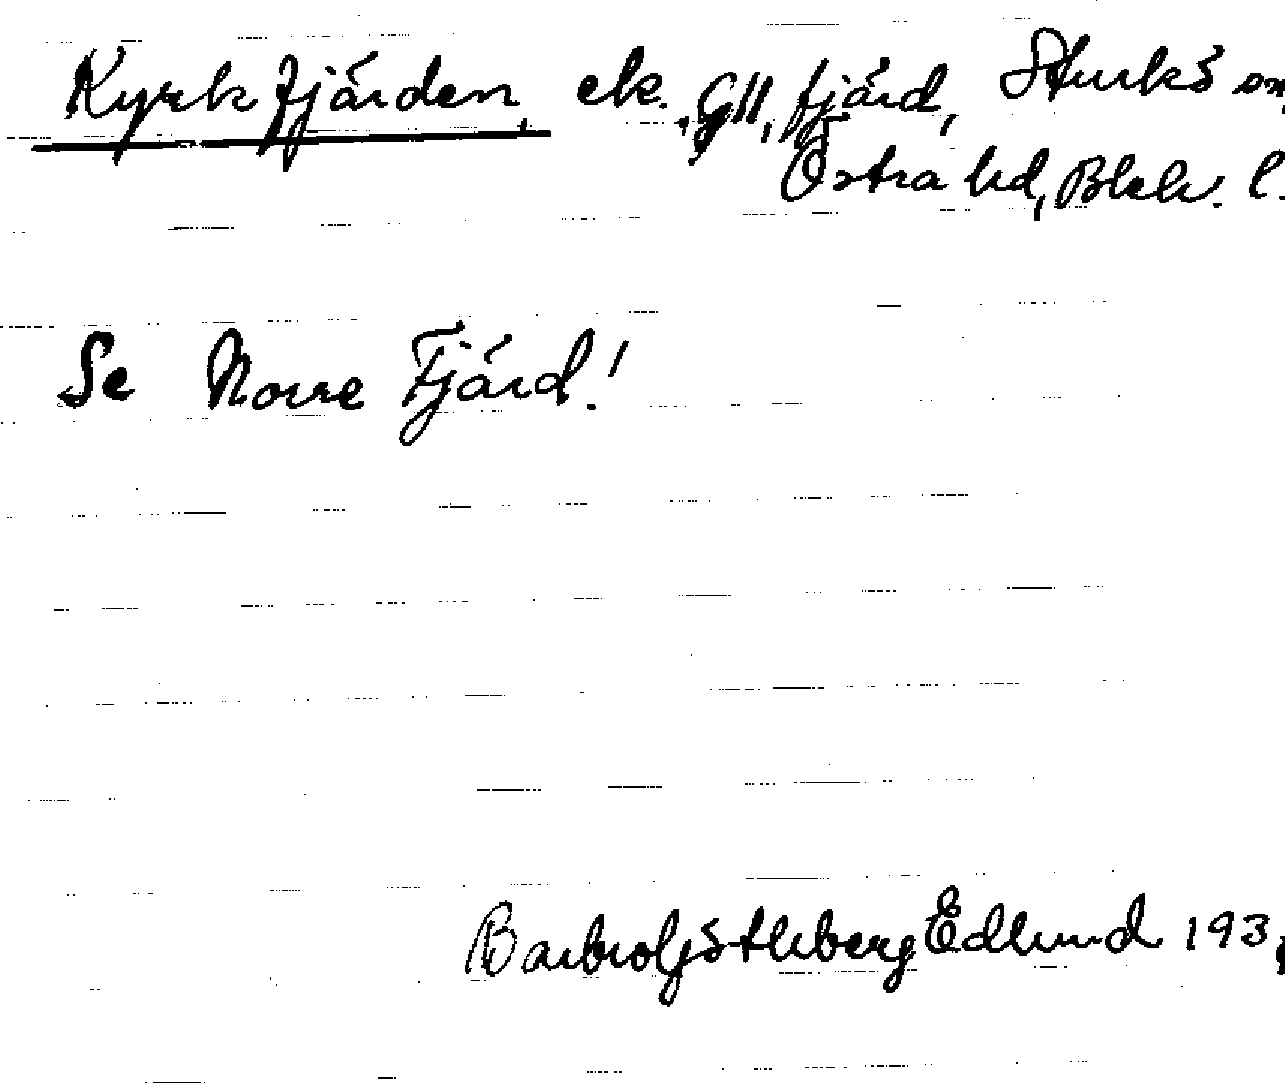 Kyrkfjärden, ek. , gll, fjärd, Sturkö sn,
Östra hd, Blek. l.
Se Norre Fjärd!
Barbro Göthberg Edlund 193